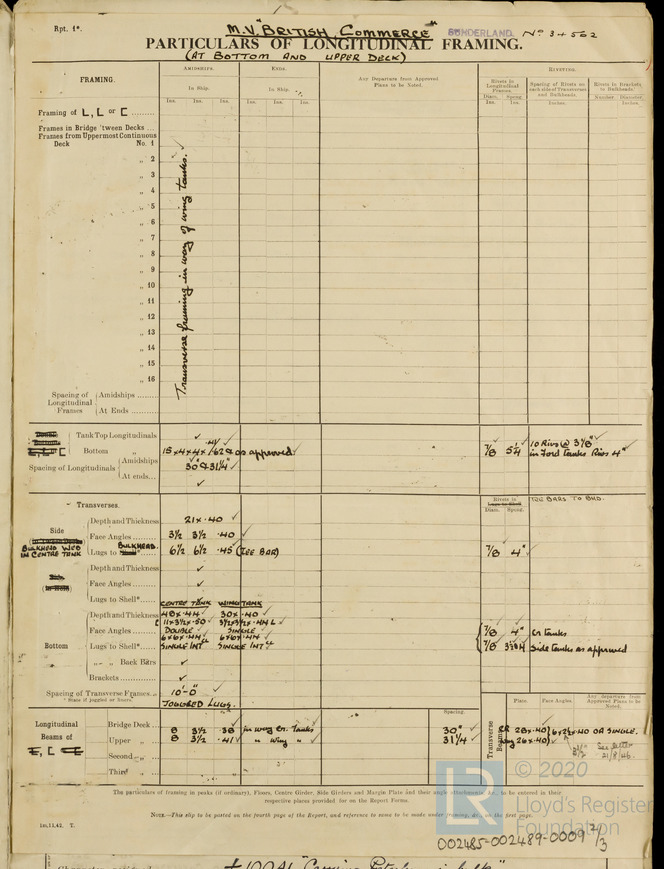 Rpt. 1*.
M.V. "BRITISH COMMERCE" SUNDERLAND. No 34562
PARTICULARS OF LONGITUDINAL FRAMING.
(AT BOTTOM AND UPPER DECK)
FRAMING.
AMIDSHIPS. ENDS. RIVETING.
In Ship. In Ship.
Any Departure from Approved Plans to be Noted.
Rivets in Longitudinal Frames.
Spacing of Rivets on each side of Transverses and Bulkheads.
Rivets in Brackets to Bulkheads.
Ins. Ins. Ins. Ins. Ins. Ins. Diam. Ins. Spcng. Ins. Inches. Number. Diameter. Inches.
Framing of L, L or [
Frames in Bridge 'tween Decks
Frames from Uppermost Continuous
Deck No. 1
„ 2
„ 3
„ 4
„ 5
„ 6
„ 7
„ 8
„ 9
„ 10
„ 11
„ 12
„ 13
„ 14
„ 15
„ 16
Transverse framing in way of wing tanks.
Spacing of Longitudinal Frames
Amidships
At Ends
Tank Top Longitudinals
Bottom „ 15 x 4 x 4 x as approved 7/8 5 1/4 10 Rivs @ 3 1/8"
in Ford tanks Rivs 4"
Spacing of Longitudinals
Amidships 30" & 31 1/4"
At ends
Transverses.
Rivets in
Diam. Spcng. TEE BARS TO BHD.
Side
BULKHEAD WEB
IN CENTRE TANK
Depth and Thickness 21 x .40
Face Angles 3 1/2 3 1/2 .40
Lugs to BULKHEAD. 6 1/2 6 1/2 .45 (TEE BAR) 7/8 4"
Depth and Thickness
Face Angles
Lugs to Shell*
CENTRE TANK WING TANK
Bottom
Depth and Thickness 48 x .44 30 x .40
Face Angles [ 11 x 3 1/2 x .50 3 1/2 x 3 1/2 x .44 L 7/8 4" Cr tanks
DOUBLE SINGLE
6x6x.44 6x6x.44
Lugs to Shell* SINGLE INTL SINGLE INTL 7/8 Side tanks as approved
„ „ Back Bars
Brackets
Spacing of Transverse Frames 10'-0"
* State if joggled or liners. JOGGLED LUGS.
Longitudinal Beams of
Spacing.
Bridge Deck 8 3 1/2 .38 in way Cr. Tanks 30"
Upper „ 8 3 1/2 .41 „ „ wing „ 31 1/4
Second „
Third „
Transverse Beams
Plate. Face Angles. Any departure from Approved Plans to be Noted.
CR 28 x .40
Wing 26 x .40
.40 OR SINGLE.
See letter
21/8/46.
The particulars of framing in peaks (if ordinary), Floors, Centre Girder, Side Girders and Margin Plate and their angle attachments, &c. to be entered in their
respective places provided for on the Report Forms.
NOTE.—This slip to be posted on the fourth page of the Report, and reference to same to be made under framing, &c. on the first page.
1m,11,42. T.
© 2020
LR
Lloyd's Register
Foundation
002485-002489-0009 2/3